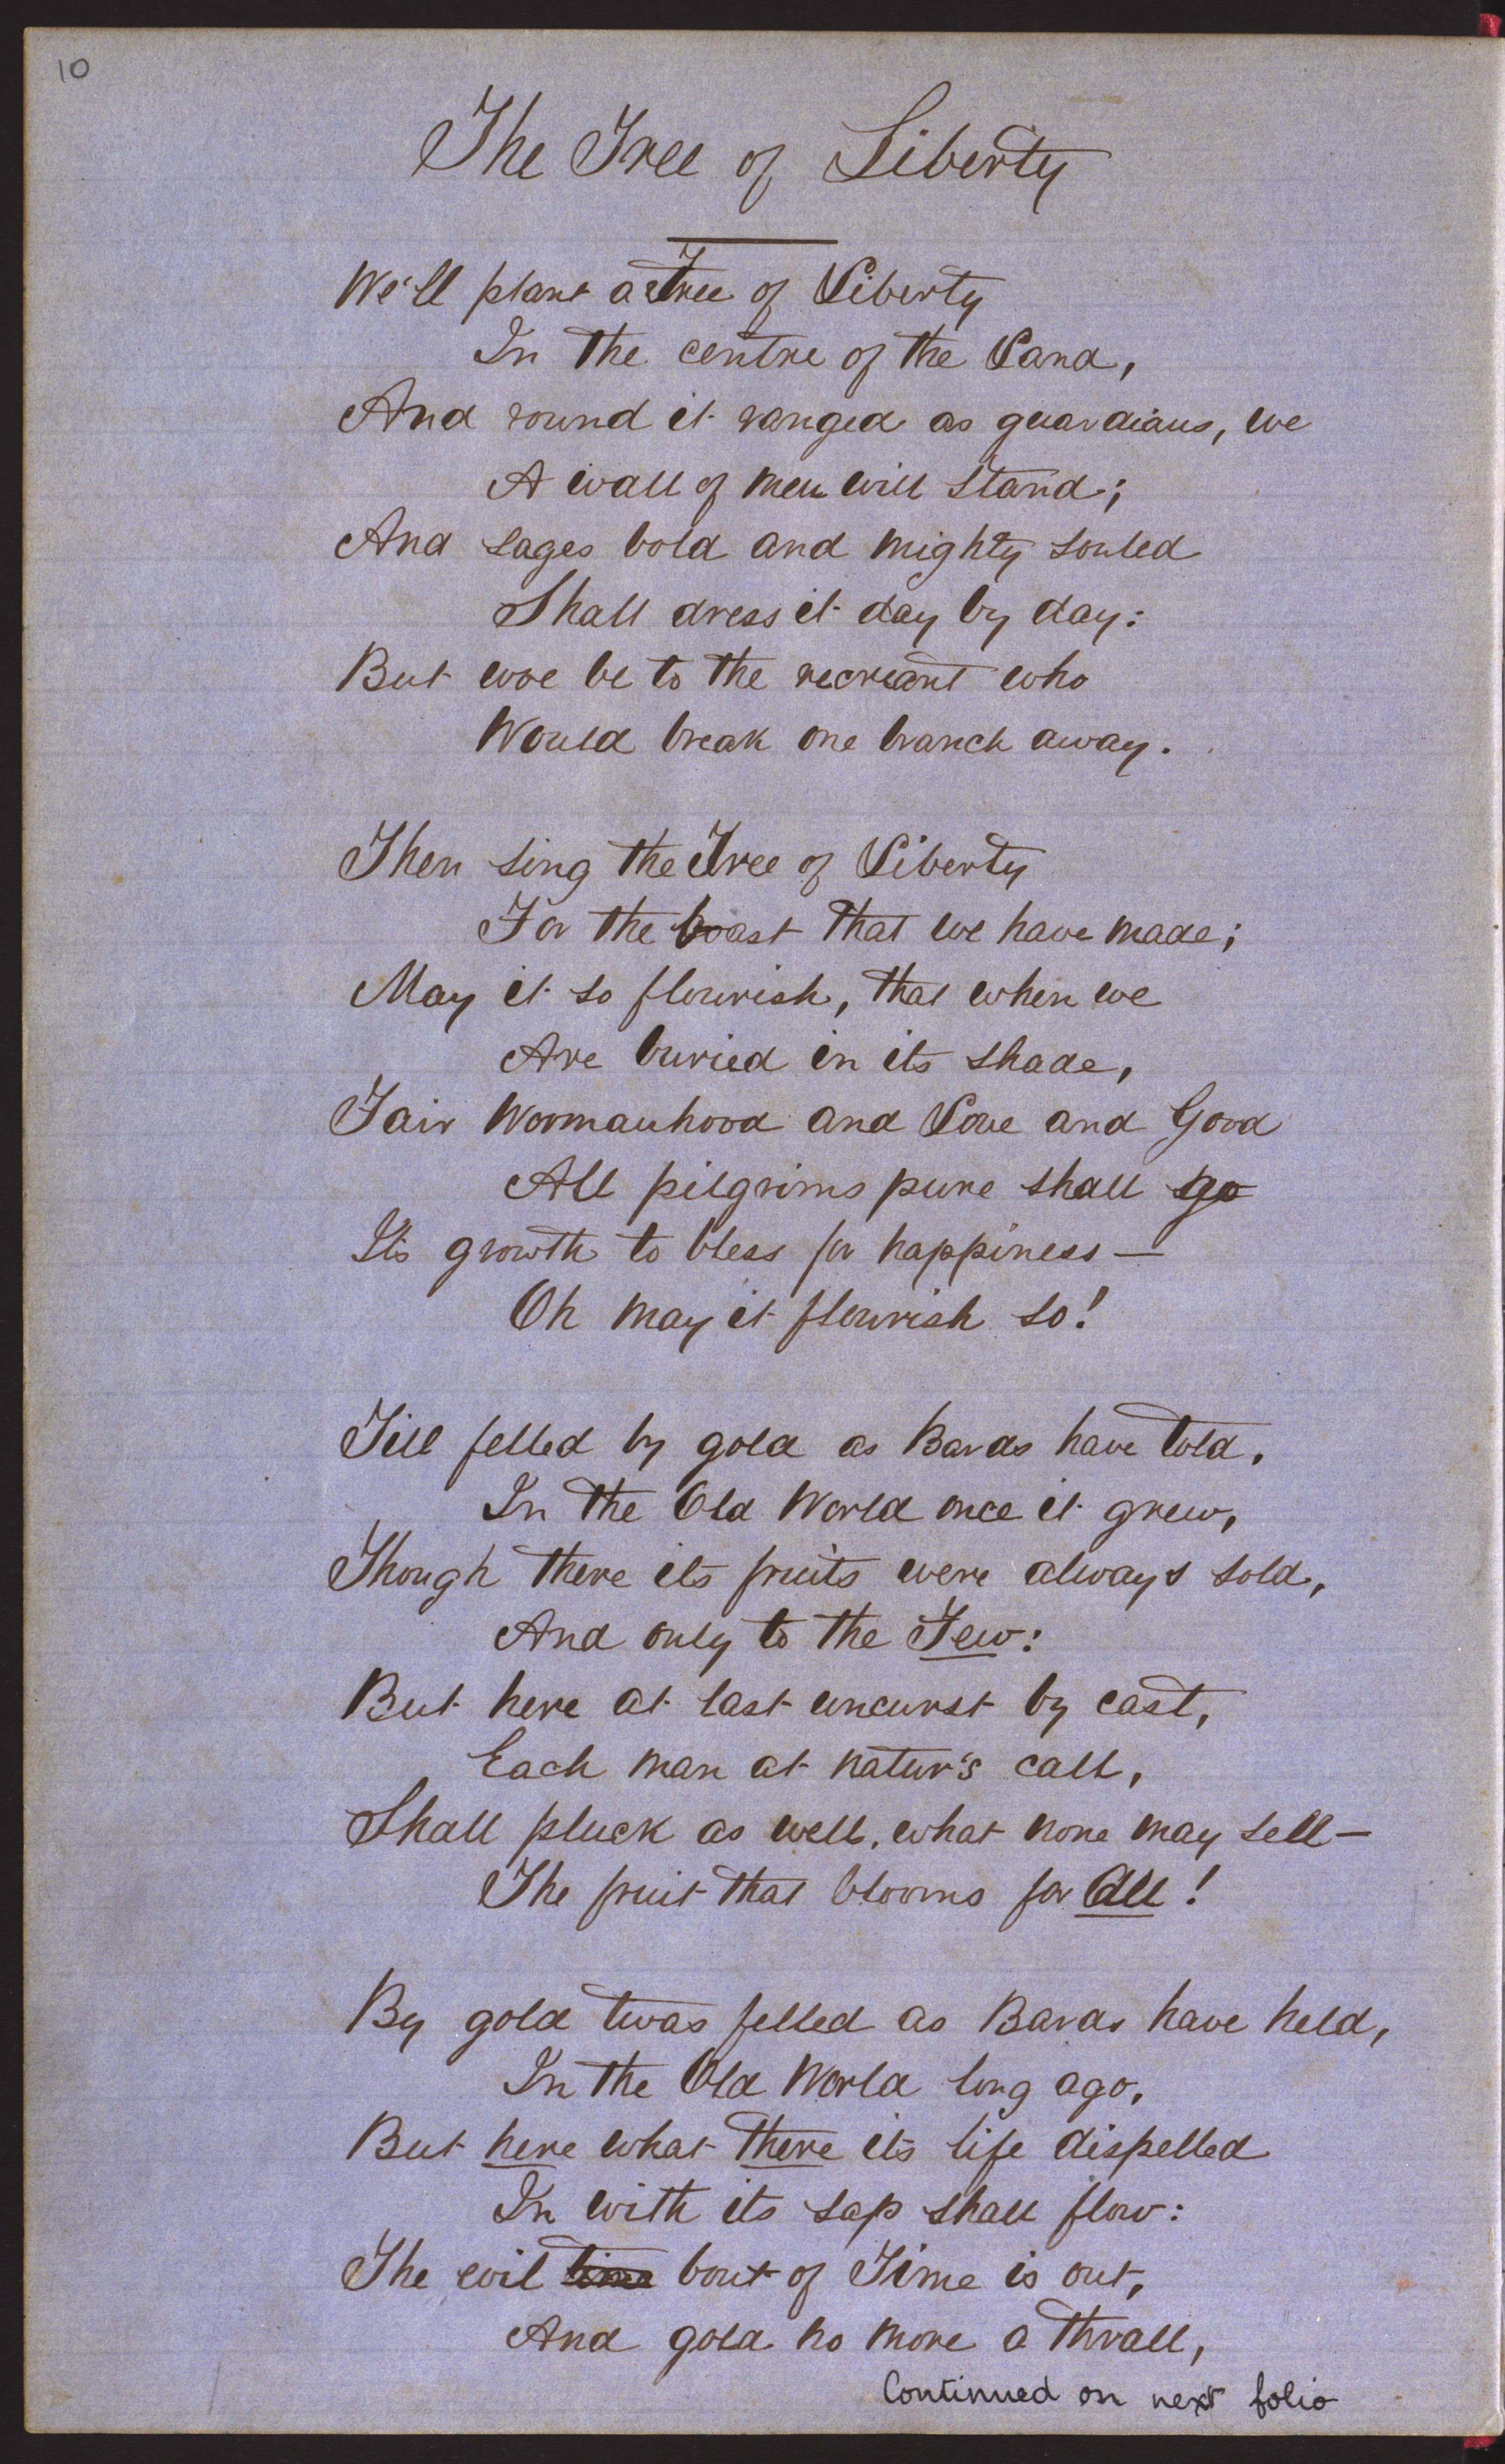 10
The Tree of Liberty
We'll plant a Tree of Liberty
In the centre of the Land,
And round it ranged as guardians, we
A wall of men will stand;
And sages bold and mighty souled
Shall dress it day by day:
But woe be to the recreant who
Would break one branch away.
Then sing the Tree of Liberty
For the boast that we have made;
May it so flourish, that when we
Are buried in its shade,
Fair Wormanhood and Love and Good
All pilgrims pure shall go
Its growth to bless for happiness—
Oh may it flourish so!
Till felled by gold as Bards have told,
In the Old World once it grew,
Though there its fruits were always sold,
And only to the Few:
But here at last uncurst by cast,
Each man at natur's call,
Shall pluck as well, what none may sell—
The fruit that blooms for All!
By gold twas felled as Bards have held,
In the Old World long ago,
But here what there its life dispelled
In with its sap shall flow:
The evil time bout of Time is out,
And gold no more a thrall,
Continued on next folio